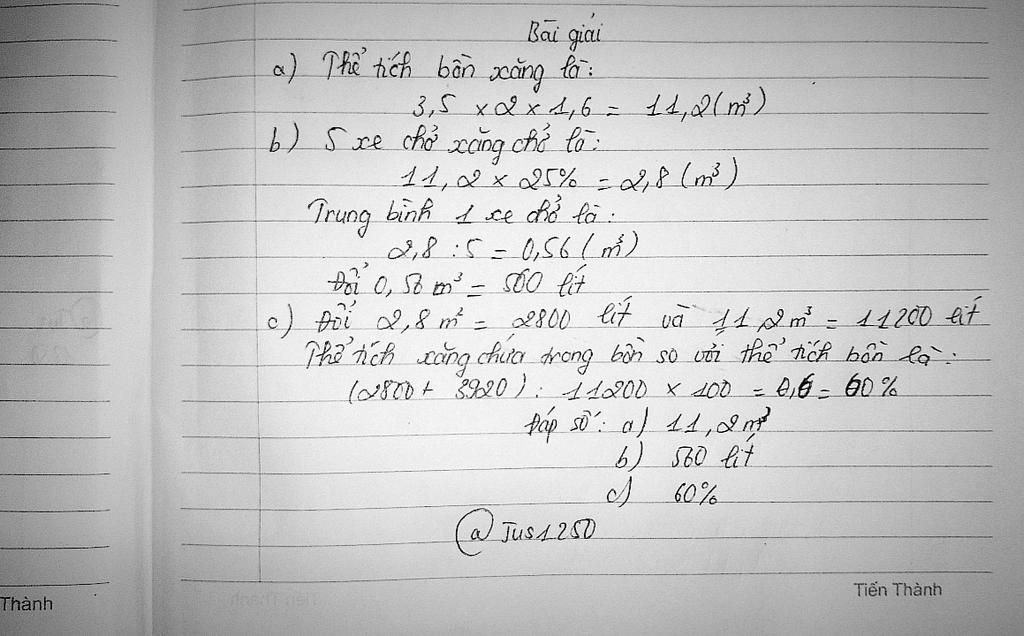 Bài giải
a) Thể tích bồn xăng là:
3,5 x 2 x 1,6 = 11,2 (m³)
b) 5 xe chở xăng chở là:
11,2 x 25% = 2,8 (m³)
Trung bình 1 xe chở là:
2,8 : 5 = 0,56 (m³)
Đổi 0,56 m³ = 560 lít
c) Đổi 2,8 m³ = 2800 lít và 11,2m³ = 11200 lít
Thể tích xăng chứa trong bồn so với thể tích bồn là:
(2800 + 3920) : 11200 x 100 = 0,6 = 60%
Đáp số: a) 11,2 m³
b) 560 lít
c) 60%
@Jus1250
Tiến Thành
Thành